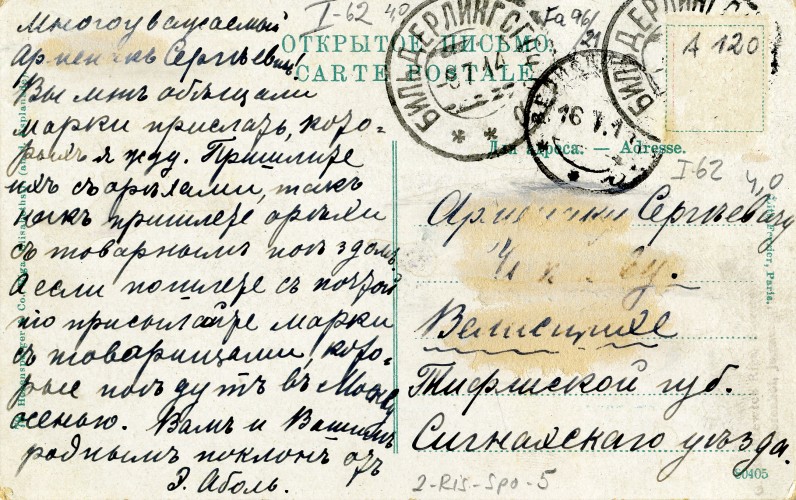 Многоуважаемый
Арменакъ Сергѣевичъ!
Вы мнѣ обѣщали
марки прислать, кото-
рыхъ я жду. Пришлите
ихъ съ орѣхами, такъ
какъ пришлете орѣхи
съ товарнымъ поѣздомъ.
А если пошлете съ почтой
то присылайте марки
съ товарищами, кото-
рые поѣдутъ въ Москву
осенью. Вамъ и Вашимъ
роднымъ поклонъ отъ
Э. Аболь.
I-62 40
Fa 96/
21
ОТКРЫТОЕ ПИСЬМО
CARTE POSTALE
БИЛЬДЕРЛИНГС
БИЛЬДЕРЛИНГ
16
A 120
Для адреса: — Adresse.
I-62 4,0
Сергѣевичу
Велисцихе
Тифлиской губ.
Сигнахскаго уѣзда.
2-Ris-Spo-5
80405
Paris.